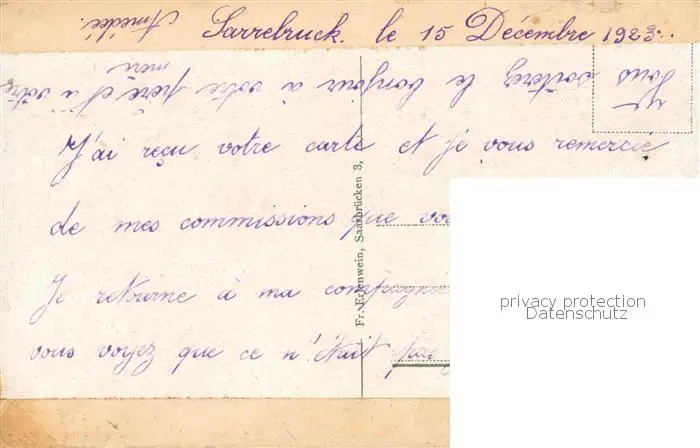 Sarrebruck. le 15 Décembre 1923.
Amédée.
Vous souterez le bonjour à votre père et à votre
mère
J'ai reçu votre carte et je vous remercie
de mes commissions que
Je retourne à ma
vous voyez que ce n'était pas
Fr. Erlenwein, Saarbrücken 3,
privacy protection
Datenschutz